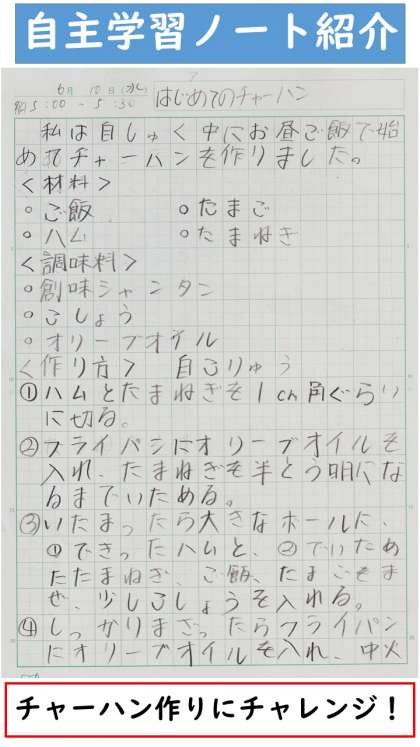 自主学習ノート紹介
6月10日(水)
5:00～5:30
はじめてのチャーハン
私は自しゅく中にお昼ご飯で始
めてチャーハンを作りました。
<材料>
○ご飯 ○たまご
○ハム ○たまねぎ
<調味料>
○創味シャンタン
○こしょう
○オリーブオイル
<作り方> 自こりゅう
①ハムとたまねぎを1cm角ぐらい
に切る。
②フライパンにオリーブオイルを
入れ、たまねぎを半とう明にな
るまでいためる。
③いたまったら大きなホールに、
①できったハムと、②でいため
たたまねぎ、ご飯、たまごをま
ぜ、少しこしょうを入れる。
④しっかりまざったらフライパン
にオリーブオイルを入れ、中火
チャーハン作りにチャレンジ！